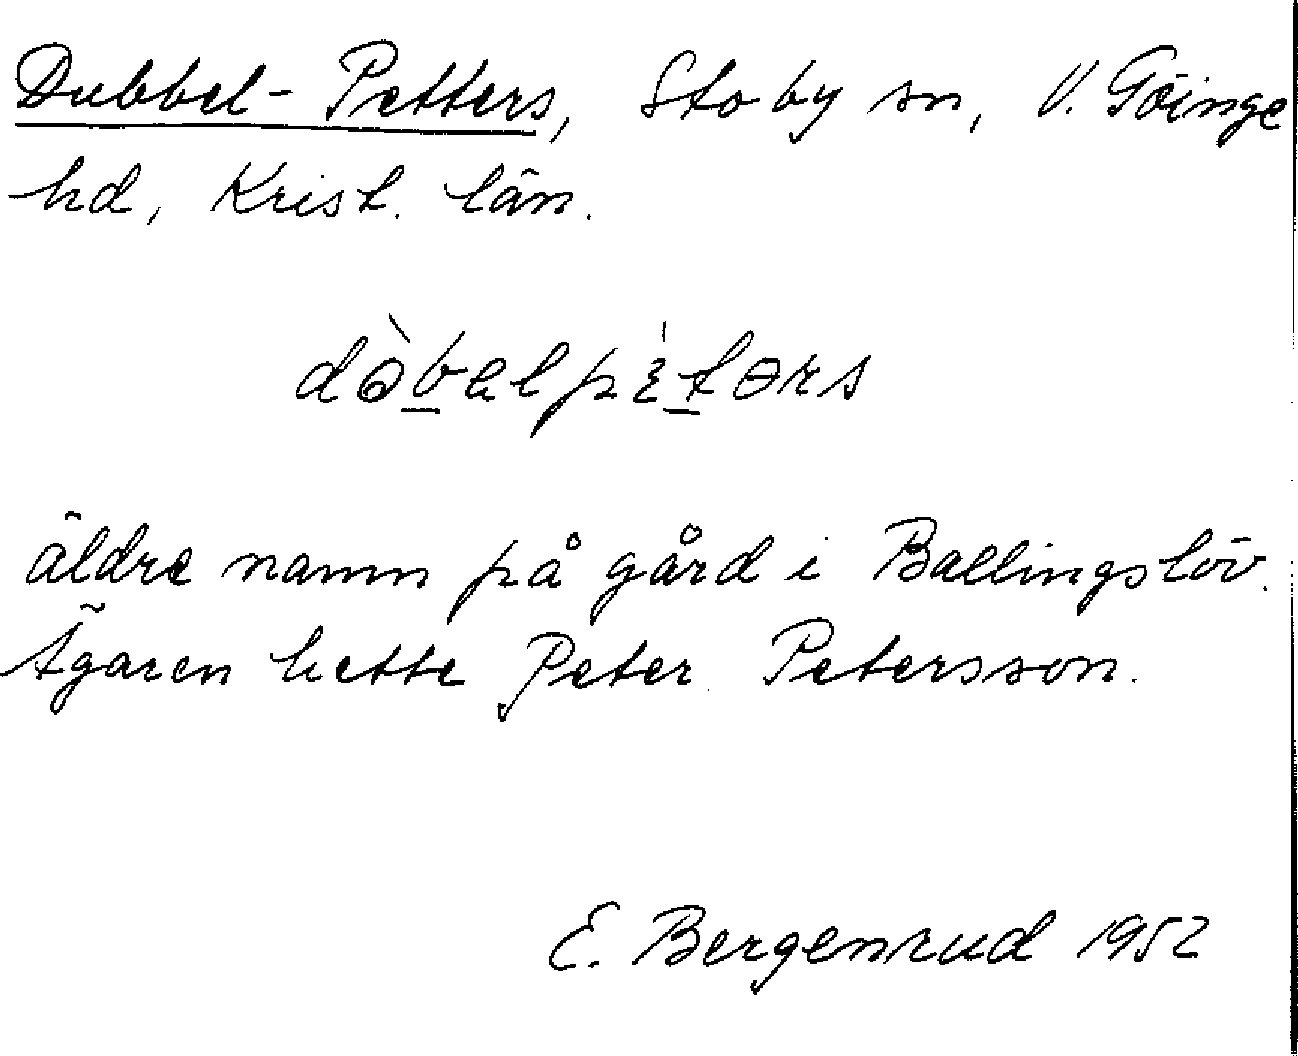 Dubbel-Petters, Stoby sn, V. Göinge
hd, Krist. län.
dòbelpètərs
äldre namn på gård i Ballingslöv.
Ägaren hette Peter Petersson.
E. Bergenrud 1952